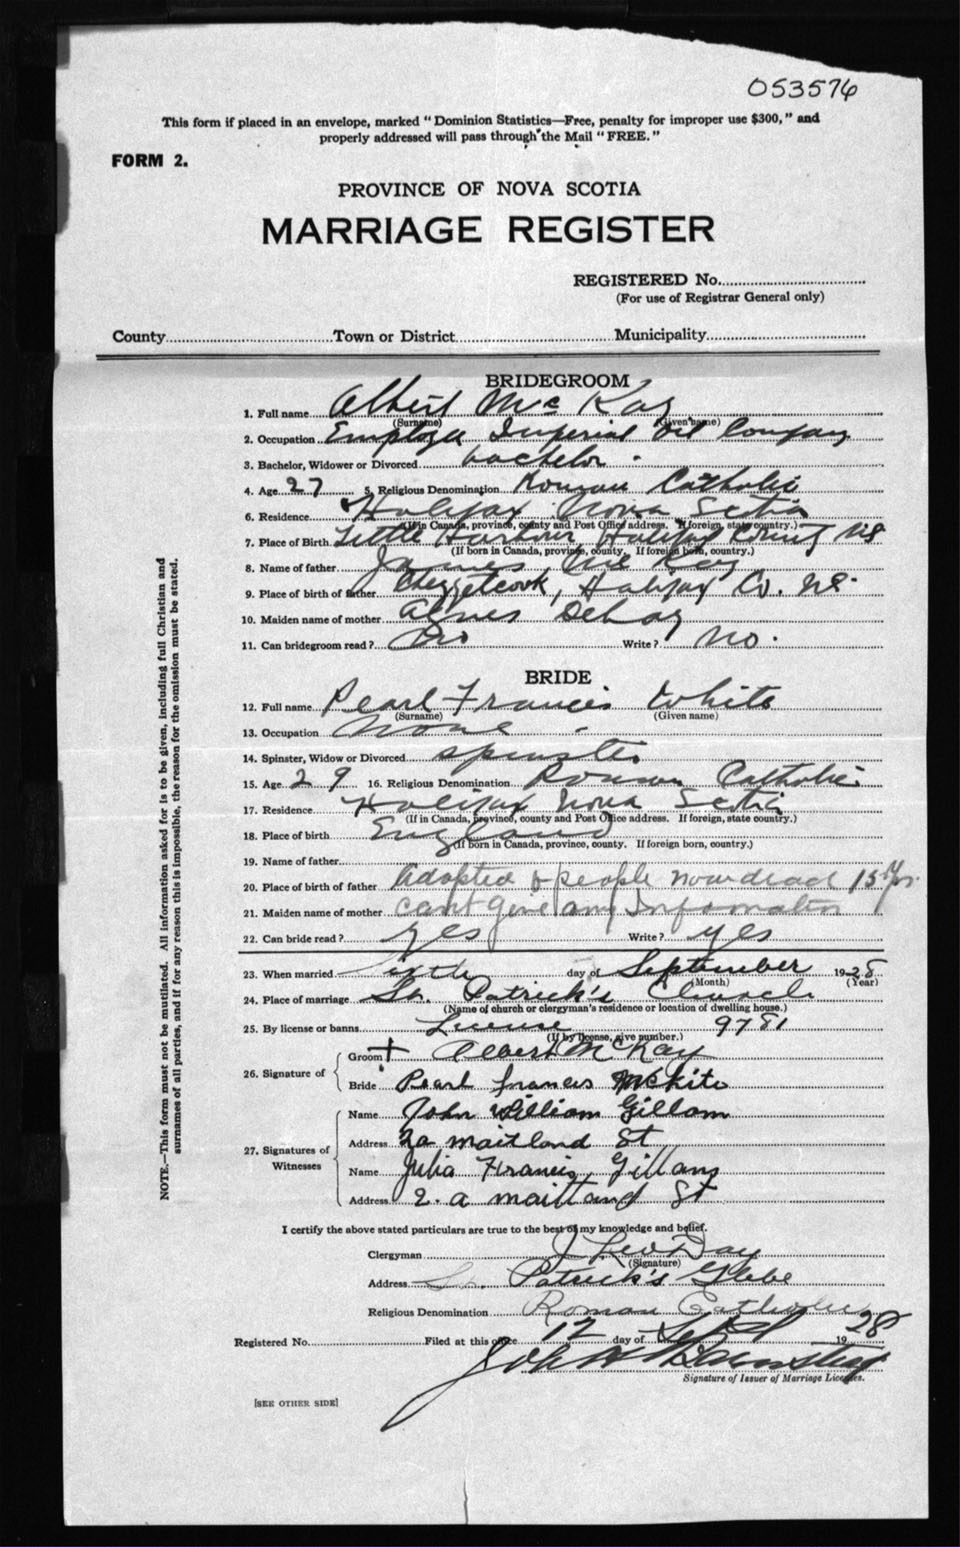 053576
This form if placed in an envelope, marked "Dominion Statistics—Free, penalty for improper use $300," and
properly addressed will pass through the Mail "FREE."
FORM 2.
PROVINCE OF NOVA SCOTIA
MARRIAGE REGISTER
REGISTERED No.
(For use of Registrar General only)
County Town or District Municipality
BRIDEGROOM
1. Full name Albert Mc Kay
(Surname) (Given name)
2. Occupation Employee Imperial Oil Company
3. Bachelor, Widower or Divorced bachelor
4. Age 27 5. Religious Denomination Roman Catholic
6. Residence Halifax Nova Scotia
(If in Canada, province, county and Post Office address. If foreign, state country.)
7. Place of Birth Little Harbour, Halifax County NS
(If born in Canada, province, county. If foreign born, country.)
8. Name of father James Mc Kay
9. Place of birth of father Chezzetcook, Halifax Co. NS.
10. Maiden name of mother Agnes DeLay
11. Can bridegroom read? No Write? No.
BRIDE
12. Full name Pearl Francis White
(Surname) (Given name)
13. Occupation None
14. Spinster, Widow or Divorced spinster
15. Age 29 16. Religious Denomination Roman Catholic
17. Residence Halifax Nova Scotia
(If in Canada, province, county and Post Office address. If foreign, state country.)
18. Place of birth England
(If born in Canada, province, county. If foreign born, country.)
19. Name of father
20. Place of birth of father Adopted & people now dead 15 yrs.
21. Maiden name of mother can't give any Information
22. Can bride read? yes Write? yes
23. When married Sixth day of September 1928
(Month) (Year)
24. Place of marriage St. Patrick's Church
(Name of church or clergyman's residence or location of dwelling house.)
25. By license or banns License 9781
(If by license, give number.)
26. Signature of
Groom + Albert McKay
Bride Pearl francis White
27. Signatures of Witnesses
Name John William Gillam
Address 2a maitland St
Name Julia Francis Gillam
Address 2. a maitland St
I certify the above stated particulars are true to the best of my knowledge and belief.
Clergyman J Leo Day
(Signature)
Address St. Patrick's Glebe
Religious Denomination Roman Catholic
Registered No. Filed at this office 12 day of Sept 1928
Signature of Issuer of Marriage Licenses.
[SEE OTHER SIDE]
NOTE.—This form must not be mutilated. All information asked for is to be given, including full Christian and
surnames of all parties, and if for any reason this is impossible, the reason for the omission must be stated.